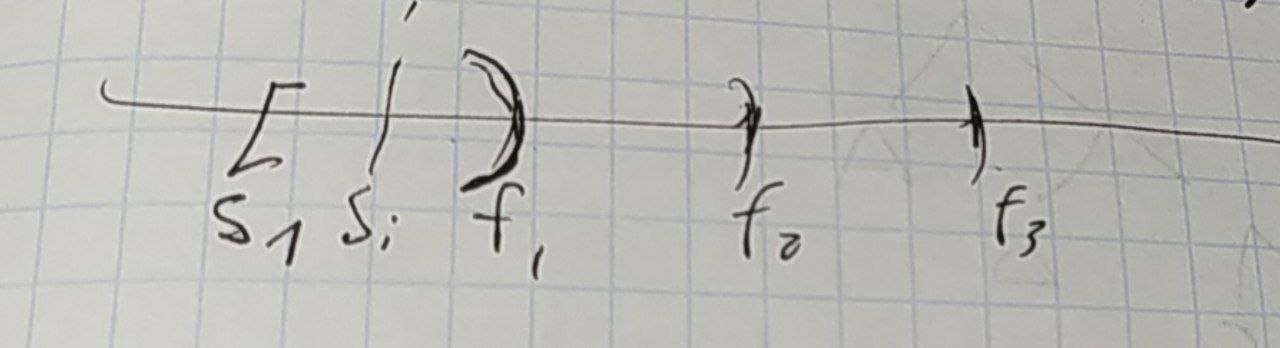 S₁ Sᵢ f₁ f₂ f₃